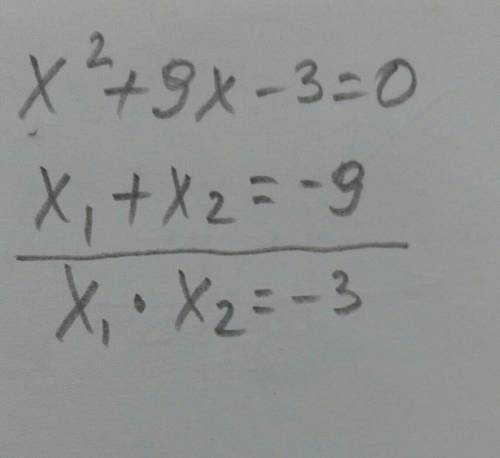 x² + 9x - 3 = 0
x₁ + x₂ = - 9
x₁ · x₂ = - 3